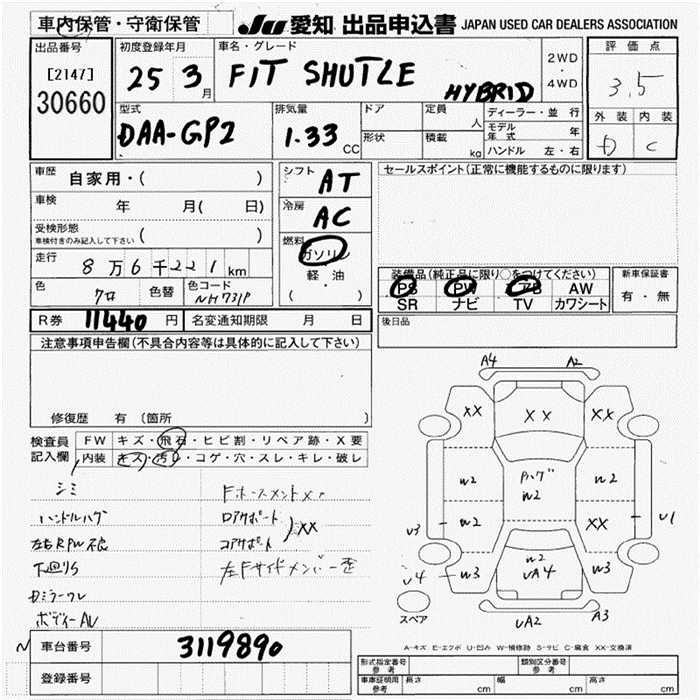 車内保管・守衛保管
JU 愛知 出品申込書 JAPAN USED CAR DEALERS ASSOCIATION
出品番号
[2147]
30660
初度登録年月
25 3月
車名・グレード
FIT SHUTLE
HYBRID
2WD
・
4WD
評価点
3.5
外装 内装
C
型式
DAA-GP2
排気量
1.33 CC
ドア
形状
定員 人
積載 kg
ディーラー・並行
モデル年式 年
ハンドル 左・右
車歴
自家用・( )
車検 年 月( 日)
受検形態
車検付きのみ記入して下さい ( )
走行 8万6千221km
色 クロ 色替 色コード NH731P
シフト AT
冷房 AC
燃料
ガソリン
軽・油
( ・ )
セールスポイント(正常に機能するものに限ります)
装備品(純正品に限り○をつけてください)
PS PW AB AW
SR ナビ TV カワシート
新車保証書
有・無
後日品
R券 11440 円 名変通知期限 月 日
注意事項申告欄(不具合内容等は具体的に記入して下さい)
修復歴 有 〔箇所 〕
検査員記入欄
FW キズ・飛石・ヒビ割・リペア跡・X要
内装 キズ・汚れ・コゲ・穴・スレ・キレ・破レ
シミ
ハンドルハゲ
左右RPW不良
下廻りS
ボディーAU
ロアサポート
コアサポート
XX
A4 A2
XX XX XX
ハゲ
W2
W2 W2
W2 XX
U3 U1
W3 W2 W3
UA4
U4
UA2 A3
スペア
A-キズ E-エクボ U-凹み W-補修跡 S-サビ C-腐食 XX-交換済
車台番号 3119890
登録番号
形式指定番号 参考
類別区分番号 参考
車庫証明用 参考 長さ cm 幅 cm 高さ cm